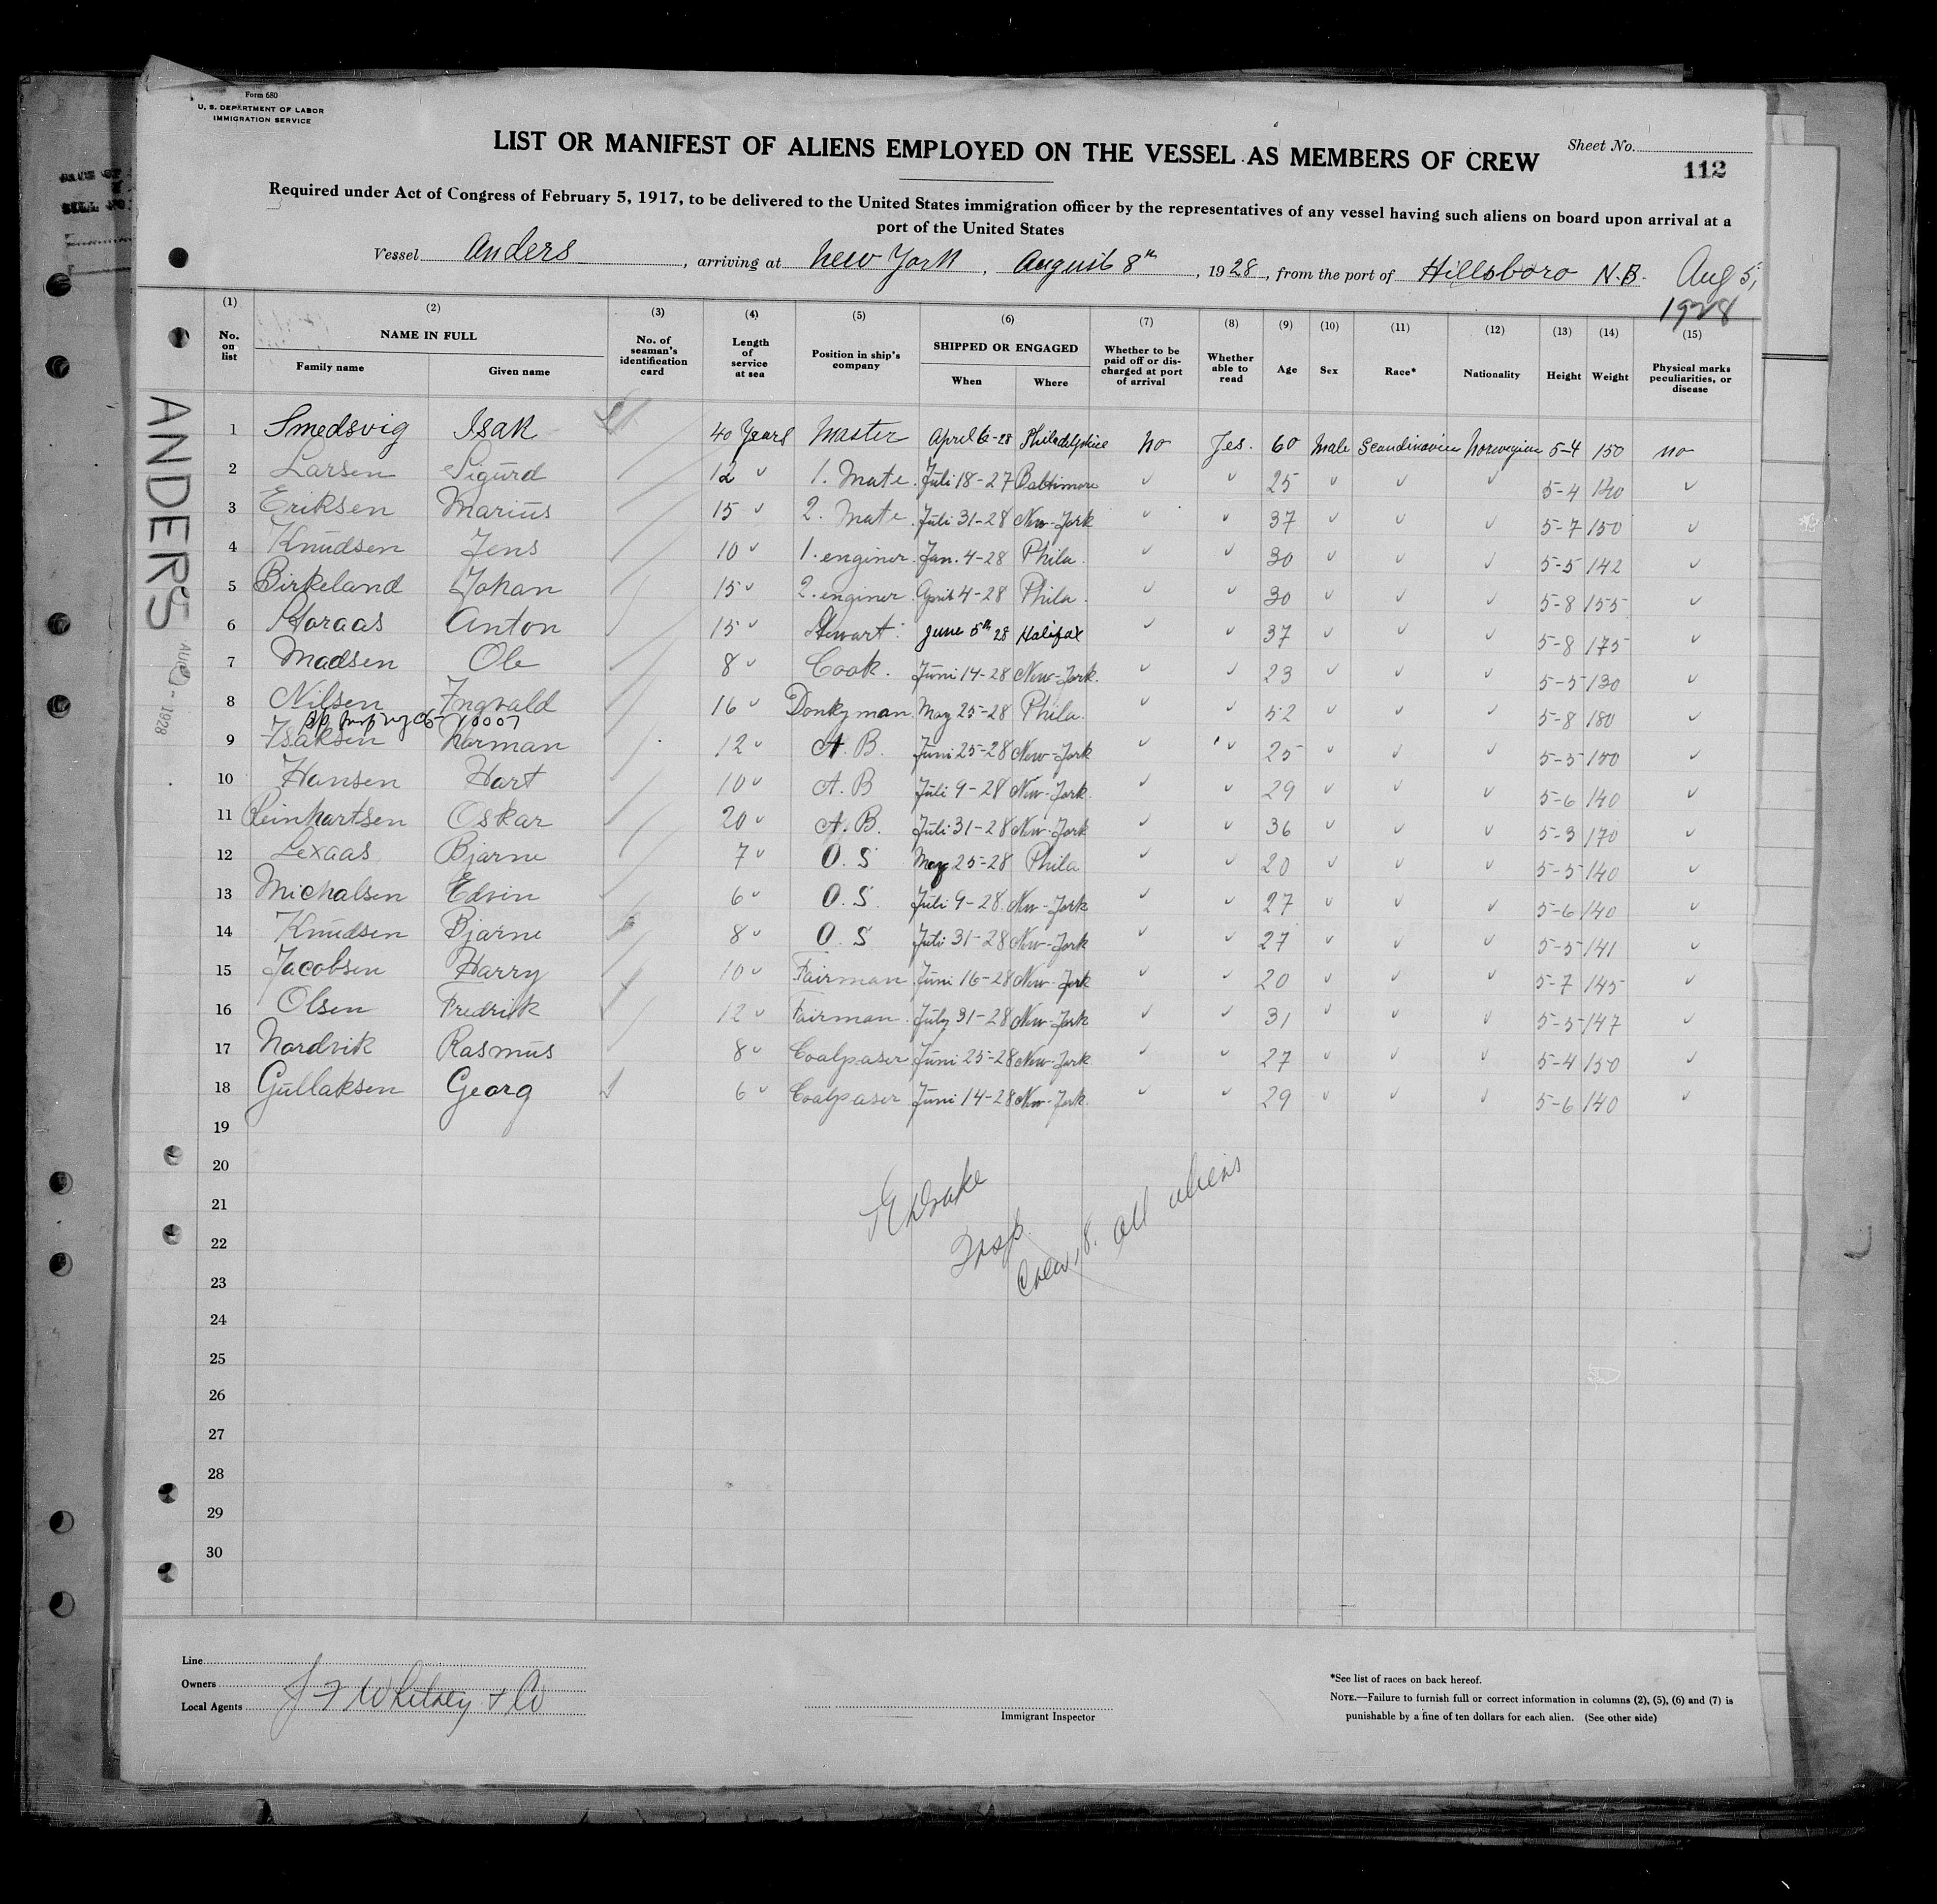 Form 680
U. S. DEPARTMENT OF LABOR
IMMIGRATION SERVICE
LIST OR MANIFEST OF ALIENS EMPLOYED ON THE VESSEL AS MEMBERS OF CREW
Sheet No.
112
Required under Act of Congress of February 5, 1917, to be delivered to the United States immigration officer by the representatives of any vessel having such aliens on board upon arrival at a
port of the United States
Vessel Anders, arriving at New York, August 8th, 1928, from the port of Hillsboro N.B. Aug 5, 1928
(1) (2) (3) (4) (5) (6) (7) (8) (9) (10) (11) (12) (13) (14) (15)
No. on list
NAME IN FULL
Family name Given name
No. of seaman's identification card
Length of service at sea
Position in ship's company
SHIPPED OR ENGAGED
When Where
Whether to be paid off or discharged at port of arrival
Whether able to read
Age Sex Race* Nationality Height Weight
Physical marks peculiarities, or disease
ANDERS
1928
1 Smedsvig Isak 40 Years Master April 6-28 Philadelphia No Yes. 60 Male Scandinavien Norwegian 5-4 150 no
2 Larsen Sigurd 12 ✓ 1. Mate Juli 18-27 Baltimore ✓ ✓ 25 ✓ ✓ ✓ 5-4 140 ✓
3 Eriksen Marius 15 ✓ 2. Mate Juli 31-28 New-York ✓ ✓ 37 ✓ ✓ ✓ 5-7 150 ✓
4 Knudsen Jens 10 ✓ 1. enginer Jan. 4-28 Phila. ✓ ✓ 30 ✓ ✓ ✓ 5-5 142 ✓
5 Birkeland Johan 15 ✓ 2. enginer April 4-28 Phila. ✓ ✓ 30 ✓ ✓ ✓ 5-8 155 ✓
6 Horaas Anton 15 ✓ Stewart June 5th 28 Halifax ✓ ✓ 37 ✓ ✓ ✓ 5-8 175 ✓
7 Madsen Ole 8 ✓ Cook. Juni 14-28 New-York. ✓ ✓ 23 ✓ ✓ ✓ 5-5 130 ✓
8 Nilsen Ingvald 16 ✓ Donkyman May 25-28 Phila. ✓ ✓ 52 ✓ ✓ ✓ 5-8 180 ✓
9 Isaksen Norman 12 ✓ A. B. Juni 25-28 New-York ✓ ✓ 25 ✓ ✓ ✓ 5-5 150 ✓
10 Hansen Hart 10 ✓ A. B Juli 9-28 New-York. ✓ ✓ 29 ✓ ✓ ✓ 5-6 140 ✓
11 Reinhartsen Oskar 20 ✓ A. B. Juli 31-28 New-York ✓ ✓ 36 ✓ ✓ ✓ 5-3 170 ✓
12 Lexaas Bjarne 7 ✓ O. S May 25-28 Phila ✓ ✓ 20 ✓ ✓ ✓ 5-5 140 ✓
13 Michalsen Edvin 6 ✓ O. S. Juli 9-28 New-York ✓ ✓ 27 ✓ ✓ ✓ 5-6 140 ✓
14 Knudsen Bjarne 8 ✓ O. S Juli 31-28 New-York ✓ ✓ 27 ✓ ✓ ✓ 5-5 141 ✓
15 Jacobsen Harry 10 ✓ Fairman Juni 16-28 New-York ✓ ✓ 20 ✓ ✓ ✓ 5-7 145 ✓
16 Olsen Fredrik 12 ✓ Fairman July 31-28 New-York ✓ ✓ 31 ✓ ✓ ✓ 5-5 147 ✓
17 Nordvik Rasmus 8 ✓ Coalpaser Juni 25-28 New-York ✓ ✓ 27 ✓ ✓ ✓ 5-4 150 ✓
18 Gullaksen Georg 6 ✓ Coalpaser Juni 14-28 New-York. ✓ ✓ 29 ✓ ✓ ✓ 5-6 140 ✓
19
20
21
22
23
24
25
26
27
28
29
30
Drake
Insp.
Crew 18. all aliens
Line
Owners
Local Agents J F Whitney & Co
Immigrant Inspector
*See list of races on back hereof.
NOTE.—Failure to furnish full or correct information in columns (2), (5), (6) and (7) is
punishable by a fine of ten dollars for each alien. (See other side)